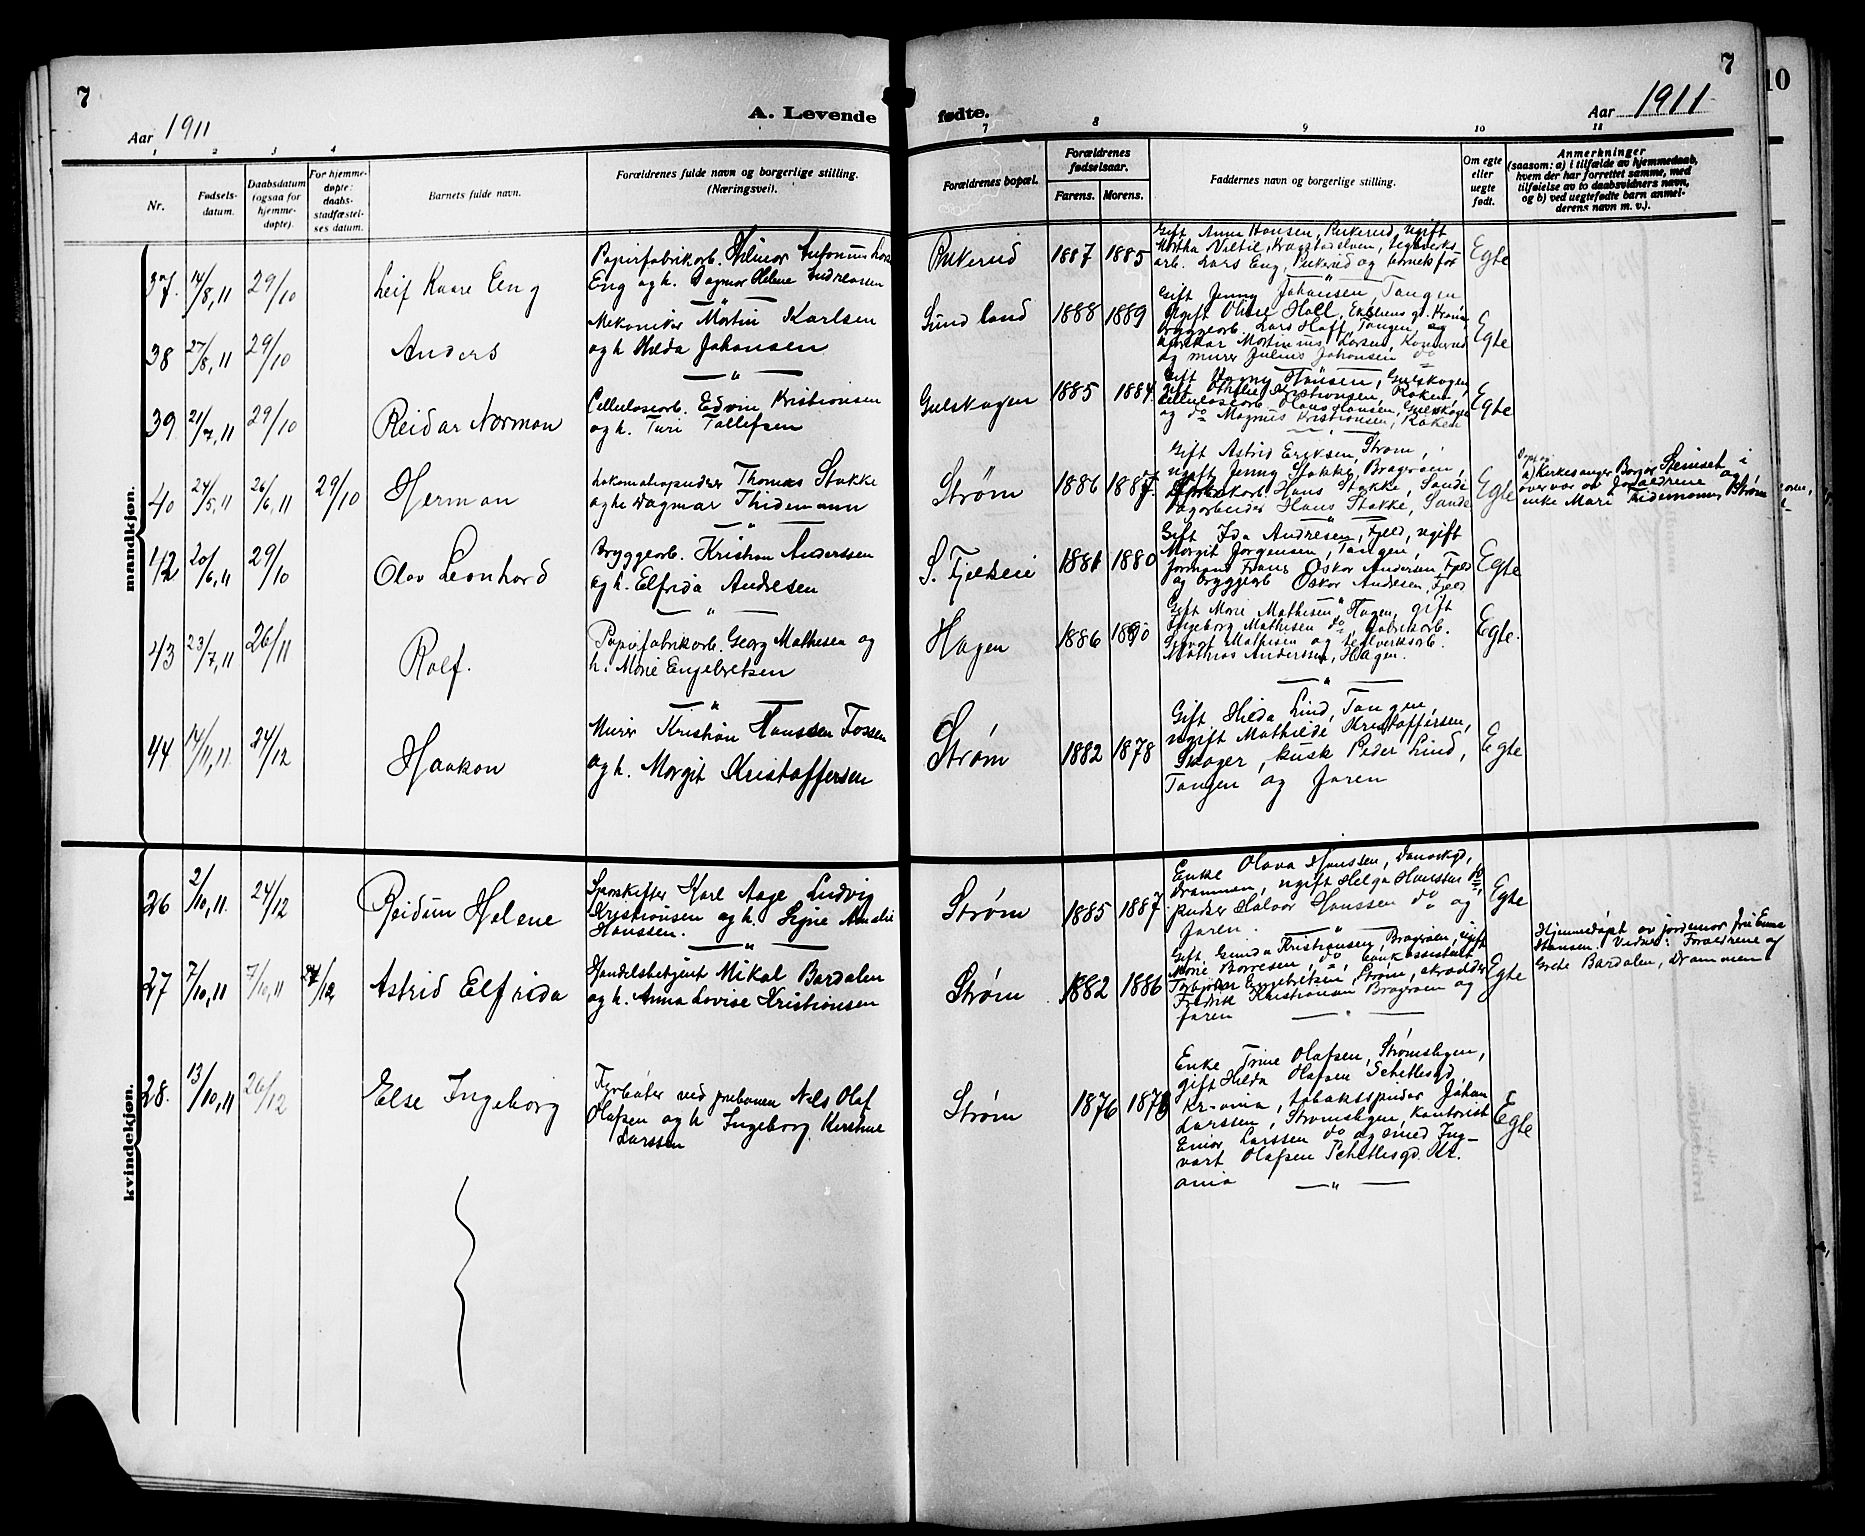 7
7
10
Aar 1911
A. Levende
fødte.
Aar 1911
1
2
3
4
7
8
9
10
11
Nr.
Fødsels-
datum.
Daabsdatum
(ogsaa for
hjemme-
døpte).
For hjemme-
døpte:
daabs-
stadfæstel-
ses datum.
Barnets fulde navn.
Forældrenes fulde navn og borgerlige stilling.
(Næringsvei).
Forældrenes bopæl.
Forældrenes
fødselsaar.
Farens.
Morens.
Faddernes navn og borgerlige stilling.
Om egte
eller
uegte
født.
Anmerkninger
(saasom: a) i tilfælde av hjemmedaab,
hvem der har forrettet samme, med
tilføielse av to daabsvidners navn,
og b) ved uegtefødte barn anmel-
derens navn m. v.).
mandkjøn.
37. 14/8, 11 29/10 Leif Kaare Eng
Papirfabrikarb. Hilmar Antonius
Eng og h. Dagmar Helene Andreasen
1887 1885
Gift Anna Hansen,
arb. Lars Eng,
Egte
38 27/8, 11 29/10 Anders
Mekaniker Martin Karlsen
og h Hilda Johansen
Sundland 1888 1889
Gift Jenny Johansen, Tangen,
bryggearb. Lars Hoff, Tangen, og
og murer Julius Johansen do
Egte
39 21/7, 11 29/10 Reidar Norman
Cellulosearb. Edvin Kristiansen
og h. Turi Tollefsen
Gulskogen 1885 1884.
Hansen, Gulskogen
cellulosearb Hans Hansen, Gulskogen
og do Magnus Kristiansen, Røken
Egte
40 24/5, 11 26/6, 11 29/10 Herman
Lokomotivpudser Thomas Stokke
og h Dagmar Thidemann
Strøm 1886 1887.
Gift Astrid Eriksen, Strøm,
ugift Jenny Stokke, Bragerøen,
Hans Stokke, Sande
Dagarbeider Hans Stokke, Sande
Egte
a) Kirkesanger Borger Steinset i
overvær av forældrene og
enke Mari Thidemann, Strøm
42 20/6, 11 29/10 Olav Leonhard
Bryggearb. Kristian Anderssen
og h. Elfrida Andresen
1881 1880
Gift Ida Andresen, Fjeld, ugift
Margit Jørgensen, Tangen,
formand Frans Oskar Andersen, Fjeld
og bryggearb Oskar Andresen, Fjeld
Egte
43 23/7, 11 26/11 Rolf.
Papirfabrikarb. Georg Mathisen og
h. Marie Engebretsen
Hagen 1886 1890
Gift Marie Mathisen Hagen, gift
Ingeborg Mathisen do, fabrikarb.
Sigvart Mathisen og
Mathias Anderssen, Hagen.
Egte.
44 14/11, 11. 24/12 Haakon
Murer Kristian Hanssen Fossen
og h. Margit Kristoffersen
Strøm 1882 1878
Gift Hilda Lind, Tangen,
ugift Mathilde Kristoffersen,
Skoger, kusk Peder Lind,
Tangen og faren
Egte
kvindekjøn.
26 2/10, 11. 24/12 Reidun Helene
Sporskifter Karl Aage Ludvig
Kristiansen og h. Signe Amalie
Hanssen.
Strøm 1885 1887
Enke Olava Hanssen,
Drammen, ugift Helga Hanssen do,
pudser Halvor Hanssen do og
faren.
Egte
27 7/10, 11 7/10, 11 24/12 Astrid Elfrida
Handelsbetjent Mikal Bardalen
og h. Anna Lovise Kristiansen
Strøm 1882 1886
Gift Gunda Kristiansen, Bragerøen, ugift
Marie Borresen do, bankassistent
Torbjørn Engebretsen, Strøm, skrædder
Fredrik Kristiansen Bragerøen og
faren
Egte
Hjemmedøpt av jordmor fru Emma
Hansen. Vidner: Forældrene og
Grete Bardalen, Drammen
28. 13/10, 11 26/12 Else Ingeborg
Fyrbøter ved jernbanen Nils Olaf
Olafsen og h Ingeborg Kirstine
Larssen
Strøm 1876 1878
Enke Trine Olafsen, Strømslygen,
gift Hilda Olafsen Schetlesgd
Kr-ania, tobakspinder Johan
Larssen, Strømslygen, kontorist
Einar Larssen do og smed Ing-
vart Olafsen Schetlesgd. Kr.
ania
Egte